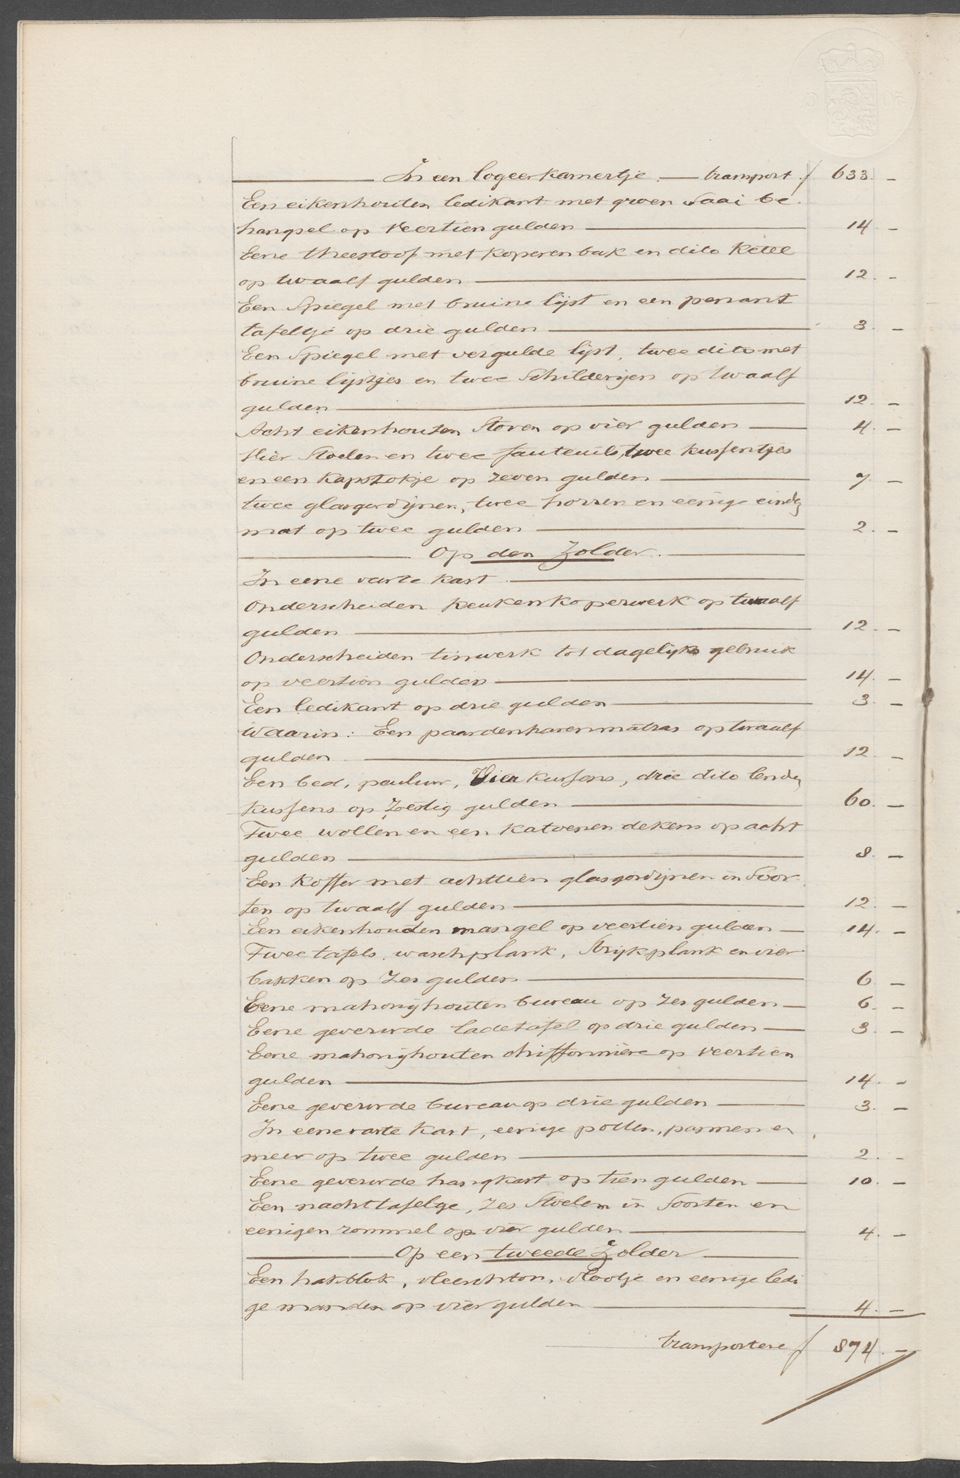 In een logeerkamertje. transport ƒ 633. -
Een eikenhouten ledikant met groen Saai be-
hangsel op veertien gulden 14. -
Eene theestoof met koperen bak en dito ketel
op twaalf gulden 12. -
Een Spiegel met bruine lijst en een penant
tafeltje op drie gulden 3. -
Een Spiegel met vergulde lijst, twee dito met
bruine lijstjes en twee Schilderijen op twaalf
gulden 12. -
Acht eikenhouten Stoven op vier gulden 4. -
Vier Stoelen en twee fauteuils, twee kussentjes
en een kapstokje op zeven gulden 7. -
twee glasgordijnen, twee horren en eenige eindj
mat op twee gulden 2. -
Op den Zolder.
In eene vaste kast
Onderscheiden keukenkoperwerk op twaalf
gulden 12. -
Onderscheiden tinwerk tot dagelijks gebruik
op veertien gulden 14. -
Een ledikant op drie gulden 3. -
Waarin: Een paardenharenmatras op twaalf
gulden 12. -
Een bed, peuluw, Vier kussens, drie dito
kussens op Zestig gulden 60. -
Twee wollen en een katoenen dekens op acht
gulden 8. -
Een koffer met achttien glasgordijnen in Soor
ten op twaalf gulden 12. -
Een eikenhouten mangel op veertien gulden 14. -
Twee tafels, waschplank, Strijkplank en vier
bakken op Zes gulden 6. -
Eene mahonijhouten bureau op Zes gulden 6. -
Eene geverwde ladetafel op drie gulden 3. -
Eene mahonijhouten chiffonnière op veertien
gulden 14. -
Eene geverwde bureau op drie gulden 3. -
In eene vaste kast, eenige potten, pannen en
meer op twee gulden 2. -
Eene geverwde hangkast op tien gulden 10. -
Een nachttafeltje, Zes Stoelen in Soorten en
eenigen rommel op vier gulden 4. -
Op een tweede Zolder
Een hakblok, vleeschton, vlootje en eenige ledi
ge manden op vier gulden 4. -
transportere ƒ 874. -